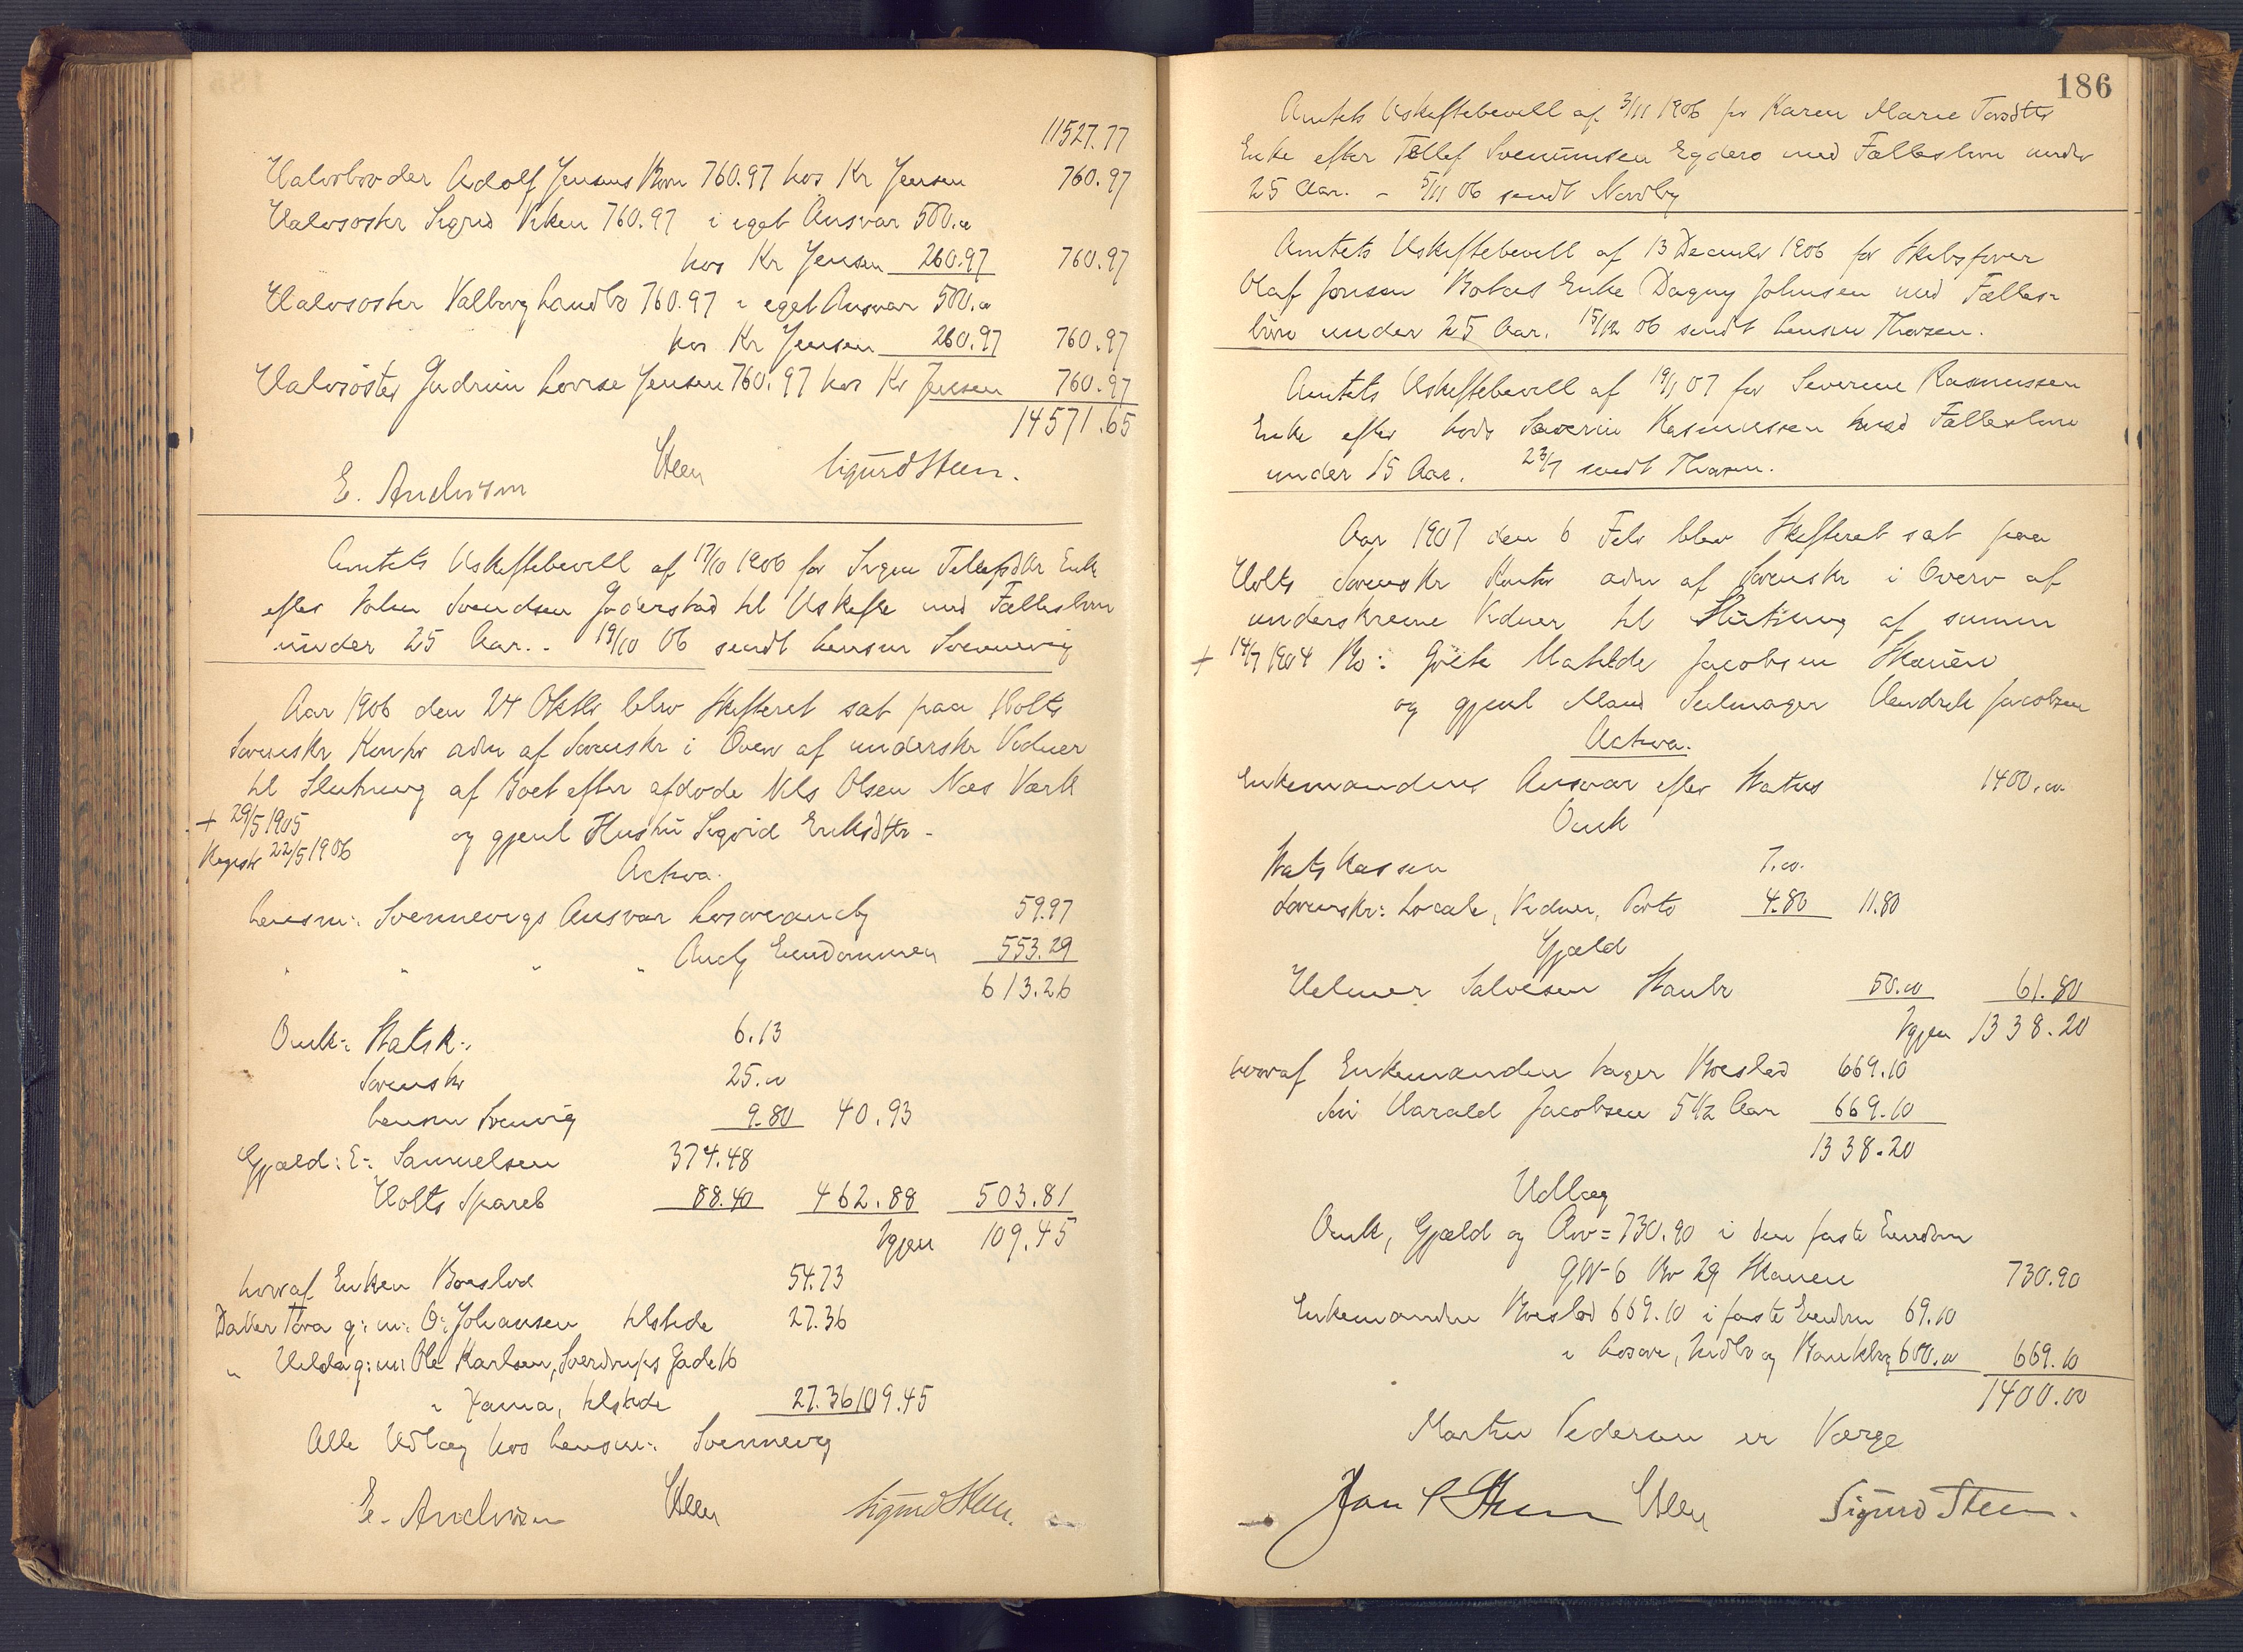 11527.77
Halvbroder Adolf Jensens Børn 760.97 hos Kr Jensen 760.97
Halvsøster Sigrid Viken 760.97 i eget Ansvar 500.00
hos Kr Jensen 260.97 760.97
Halvsøster Valborg Sandbo 760.97 i eget Ansvar 500.00
hos Kr Jensen 260.97 760.97
Halvsøster Gudrun Lovise Jensen 760.97 hos Kr Jensen 760.97
14571.65
E. Anderssen Steen Sigurd Steen.
Amtets Uskiftebevill af 17/10 1906 for Signe Tellefsdtr Enke
efter Johan Svendsen Gjderstad til Uskifte med Fællesbørn
under 25 Aar. . 19/10 06 sendt Lensm Svennevig
Aar 1906 den 24 Oktbr blev Skifteret sat paa Holts
Sorenskr Kontor adm af Sorenskr i Overv af underskr Vidner
til Slutning af Boet efter afdøde Nils Olsen Næs Værk
+ 29/5 1905 og gjenl Hustru Sigrid Eriksdtr -
Registr 22/5 1906
Activa.
Lensm: Svennevigs Ansvar Løsøreaucty 59.97
" " " " Aucty Eiendommen 553.29
613.26
Omk: Statsk: 6.13
Sorenskr 25.00
Lensm Svennevig 9.80 40.93
Gjæld: E: Samuelsen 374.48
Holts Spareb 88.40 462.88 503.81
Igjen 109.45
hvoraf Enken Boeslod 54.73
Datter Tora g: m: O: Johansen tilstede 27.36
" Hilda g: m: Ole Karlsen, Sverdrups Gade 16
i , tilstede 27.36 109.45
Alle Udlæg hos Lensm: Svennevig
E. Anderssen Steen Sigurd Steen.
186
Amtets Uskiftebevill af 3/11 1906 for Karen Marie Torsdtr
Enke efter Tellef Svenumsen Egderø med Fællesbørn under
25 Aar. - 5/11 06 sendt Nordby
Amtets Uskiftebevill af 13 Decembr 1906 for Skibsfører
Olaf Jonsen Enke Dagny Johnsen med Fælles-
børn under 25 Aar. 15/12 06 sendt Lensm Thorsen.
Amtets Uskiftebevill af 19/1 07 for Severine Rasmussen
Enke efter Lods Severin Rasmussen med Fællesbørn
under 15 Aar. 23/1 sendt Thorsen.
Aar 1907 den 6 Febr blev Skifteret sat paa
Holts Sorenskr Kontor adm af Sorenskr i Overv af
underskrevne Vidner til Slutning af summ
+ 14/7 1904 Bo: Matilde Jacobsen Skauen
og gjenl Mand Seilmager Hendrik Jacobsen
Activa.
Enkemandens Ansvar efter Status 1400.00
Omk
Statskassen 7.00
Sorenskr: Locale, Vidner, Porto 4.80 11.80
Gjæld
Helmer Salvesen Staubø 50.00 61.80
Igjen 1338.20
hvoraf Enkemanden tager Boeslod 669.10
Søn Harald Jacobsen 5 1/2 Aar 669.10
1338.20
Udlæg
Omk, Gjæld og Arv = 730.90 i den faste Eiendom
GN 6 Br 29 Skauen 730.90
Enkemanden Boeslod 669.10 i faste Eiendom 69.10
i Løsøre, Indbo og Bankbog 600.00 669.10
1400.00
Martin Pedersen er Værge
Jan Steen Sigurd Steen.